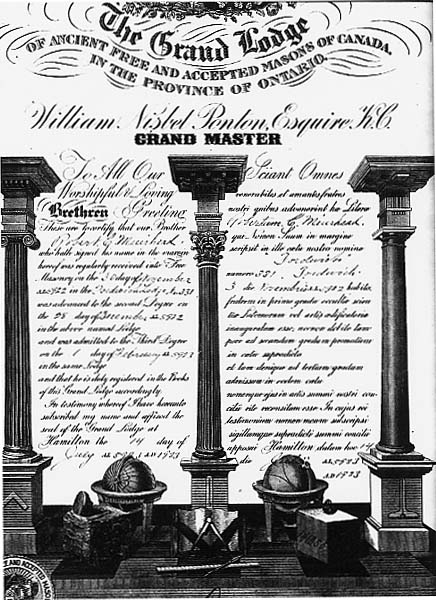 The Grand Lodge
OF ANCIENT FREE AND ACCEPTED MASONS OF CANADA,
IN THE PROVINCE OF ONTARIO.
William Nisbet Ponton, Esquire K.C.
GRAND MASTER
To All Our
Worshipful & Loving
Brethren Greeting
These are to certify that our Brother
who hath signed his name in the margin
hereof was regularly received into Free
Masonry on the day of
in the
was advanced to the second Degree on
the 28 day of
in the above named Lodge
and was admitted to the Third Degree
on the 1 day of February
in the same Lodge
and that he is duly registered in the Books
of this Grand Lodge accordingly
In testimony whereof I have hereunto
subscribed my name and affixed the
seal of the Grand Lodge at
Hamilton the 14 day of
July A.D 1923
Sciant Omnes
venerabiles et amantes fratres
nostri quibus advenerint hæ Literæ
qui Nomen Suum in margine
scripsit in illa cœtu nostro nomine
numero
3 die habito,
fratrem in prima gradu occultæ scien
tiæ Latomorum vel artis ædificatoriæ
inauguratum esse, necnon debito tem
pore ad secundum gradum promotum
in cœtu supradicto
et tum denique ad tertium gradum
admissum in eodem cœtu
nomenque ejus in actis summi nostri con
cilii rite recensitum esse. In cujus rei
testimonium nomen meum subscripsi
sigillumque supradicti summi concilii
apposui Hamilton datum hoc 14
die
A.D 1923